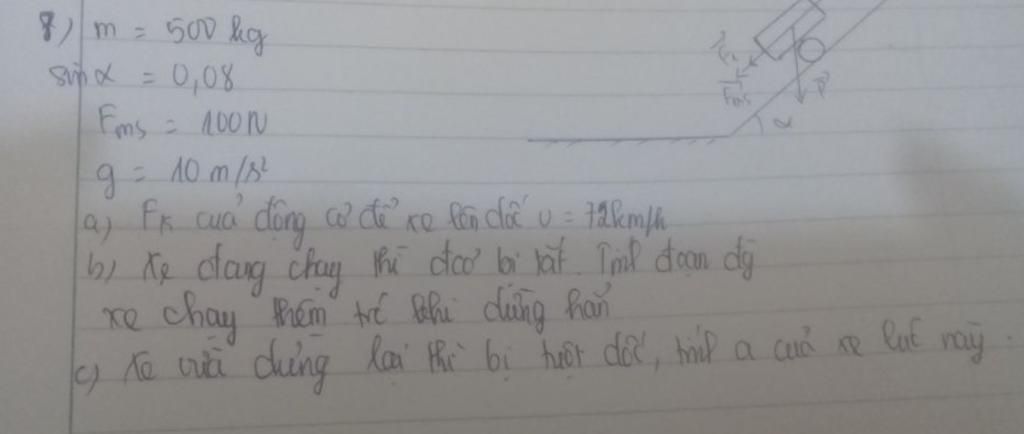 8) m = 500 kg
sin α = 0,08
Fms = 100N
g = 10 m/s²
a) FK của động cơ để xe lên dốc v = 72km/h
b) Xe đang chạy thì đcơ bị tắt. Tính đoạn đg
xe chạy thêm trc khi dừng hẳn
c) Xe vừa dừng lại thì bị tuột dốc, tính a của xe lúc này.
Fms
P
α